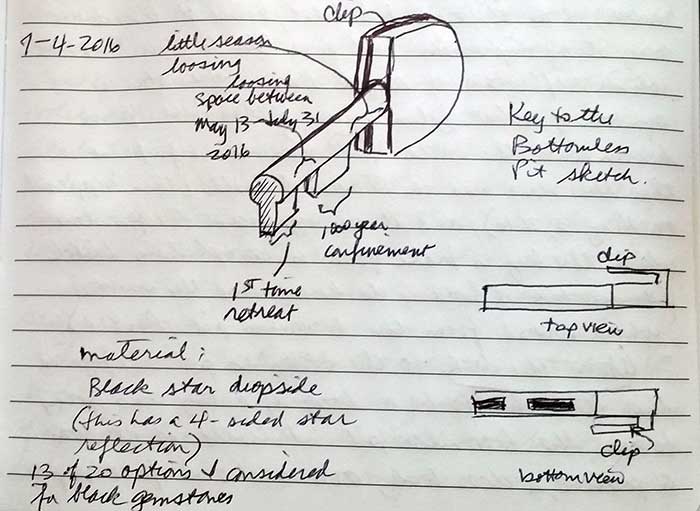 7-4-2016
little season
loosing
loosing
space between
May 13 - July 31
2016
clip
Key to the
Bottomless
Pit sketch.
1000 year
confinement
1st time
retreat
clip
top view
material:
Black star diopside
(this has a 4-sided star
reflection)
13 of 20 options I considered
for black gemstones
clip
bottom view